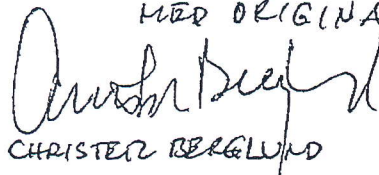 MED ORIGINA
CHRISTER BERGLUND